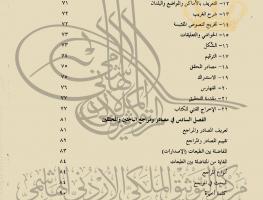 ١٢- التعريف بالأماكن والمواضع والبلدان ٧١
١٣- شرح الغريب ٧٢
١٤- تخريج النصوص المقتبسة ٧٢
١٥- الحواشي والتعليقات ٧٣
١٦- الشكل ٧٣
١٧- الترقيم
١٨- مصادر المحقق
١٩- الاستدراك
٢٠- الفهارس
٢١- مقدمة التحقيق
٢٢- الإخراج الفني للكتاب
الفصل السادس في مصادر ومراجع الباحثين والمحققين ٨١
تعريف المصادر والمراجع ٨١
تقييم المصادر والمراجع ٨٢
المفاضلة بين الطبعات (الإصدارات) ٨٣
الغاية من المفاضلة بين الطبعات ٨٤
أنواع المراجع
البحث في المراجع
كلمة أخيرة